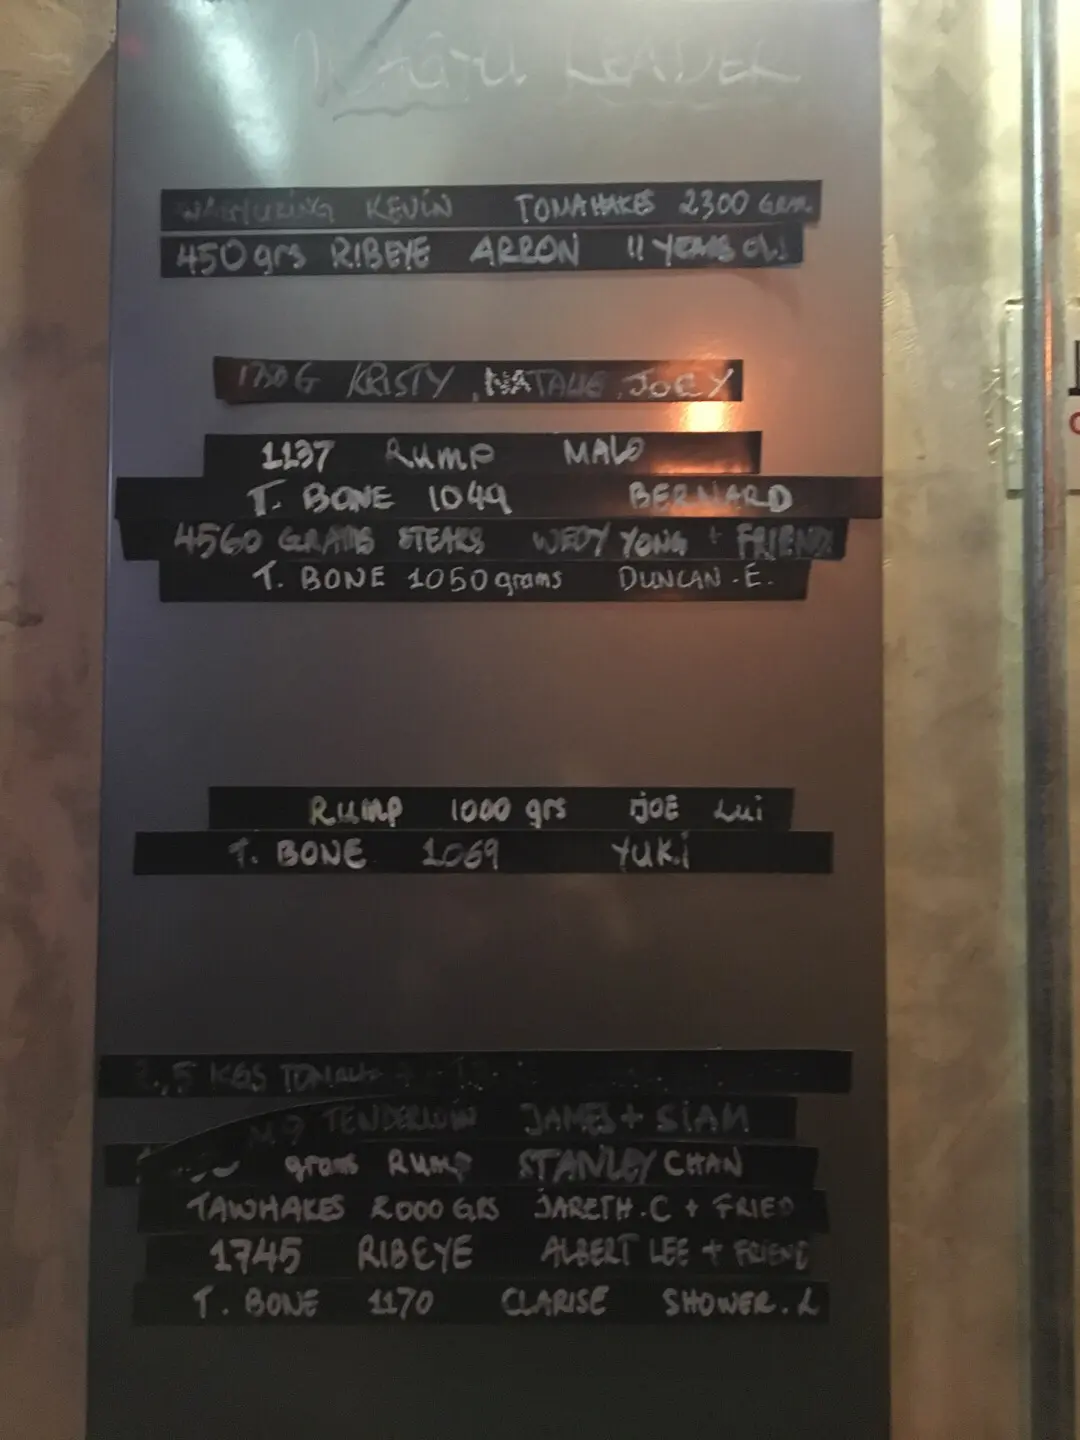 WAGYU LEADER
KEVIN TOMAHAKES 2300 GRM
450 grs RIBEYE ARRON 11 YEARS OLD
KRISTY, NATALIE, JOEY
1137 RUMP MALO
T. BONE 1049 BERNARD
4560 GRAMS STEAKS WEDY YONG + FRIENDS
T. BONE 1050 grams DUNCAN. E.
RUMP 1000 grs JOE Lui
T. BONE 1069 YUKi
KGS
M9 TENDERLOIN JAMES + SIAM
grams RUMP STANLEY CHAN
TAWHAKES 2000 GRS JARETH. C + FRIED
1745 RIBEYE ALBERT LEE + FRIEND
T. BONE 1170 CLARISE SHOWER. L